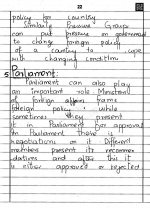 22
policy for country
Similarly Pressure Groups
can put pressure on government
to change foreign policy
of a country to cope
with changing condition
5 Parliament:
Parliament can also play
an important role Ministry
of foreign affairs frame
foreign policy while
sometimes they present
it in Parliament for approval
In Parliament there is
negotiations on it Different
members present its recommen
dations and after this it
is either approved or rejected